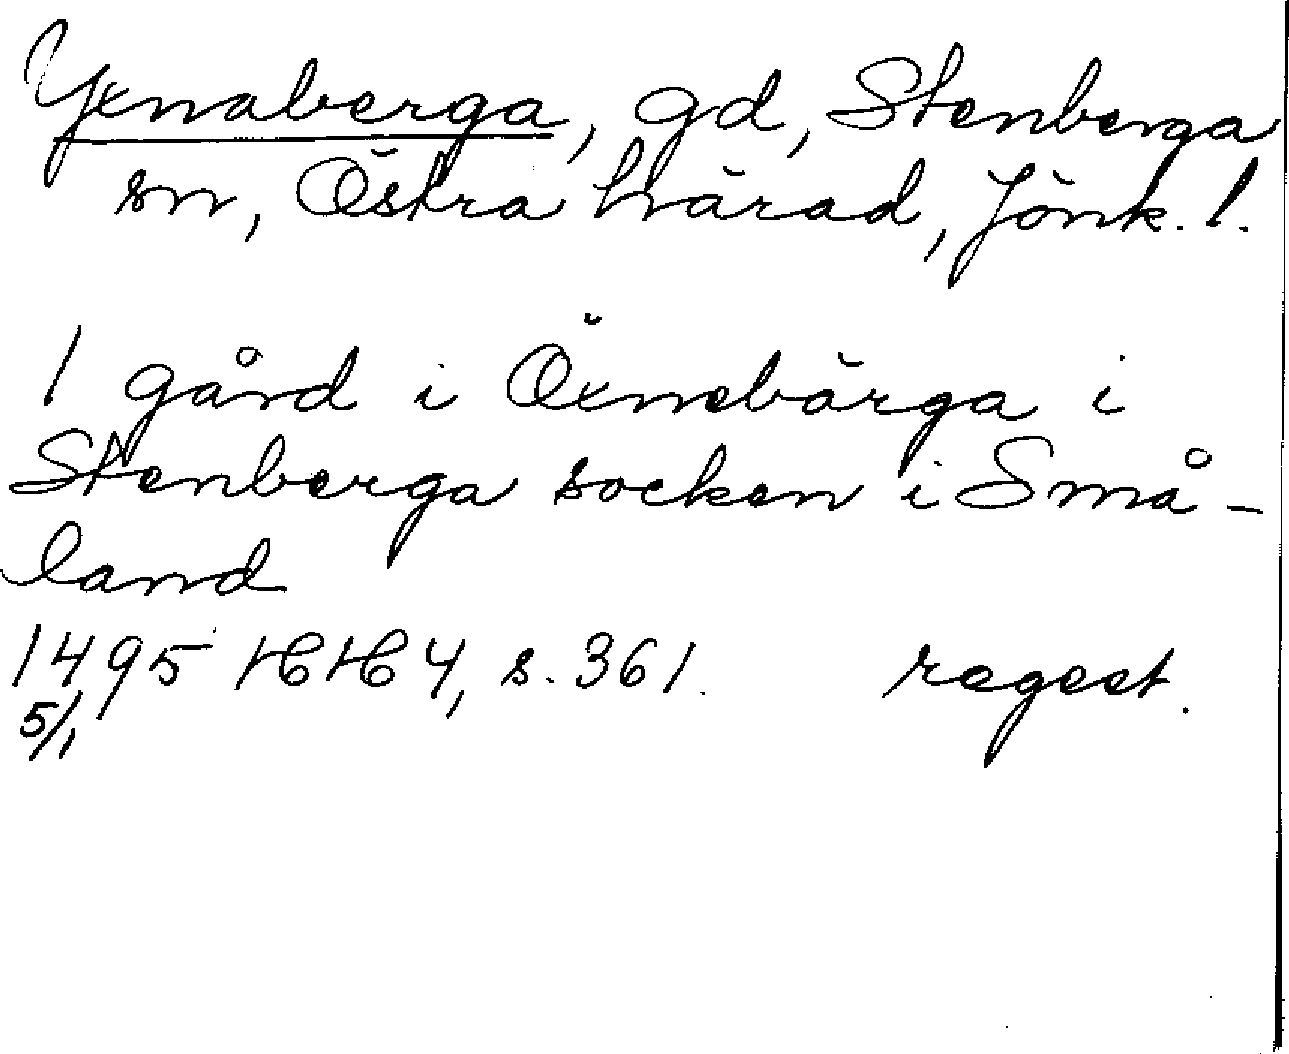 Yxnaberga, gd, Stenberga
sn, Östra härad, Jönk. l.
1 gård i Öxnebärga i
Stenberga socken i Små-
land
1495 HH 4, s. 361. regest.
5/1